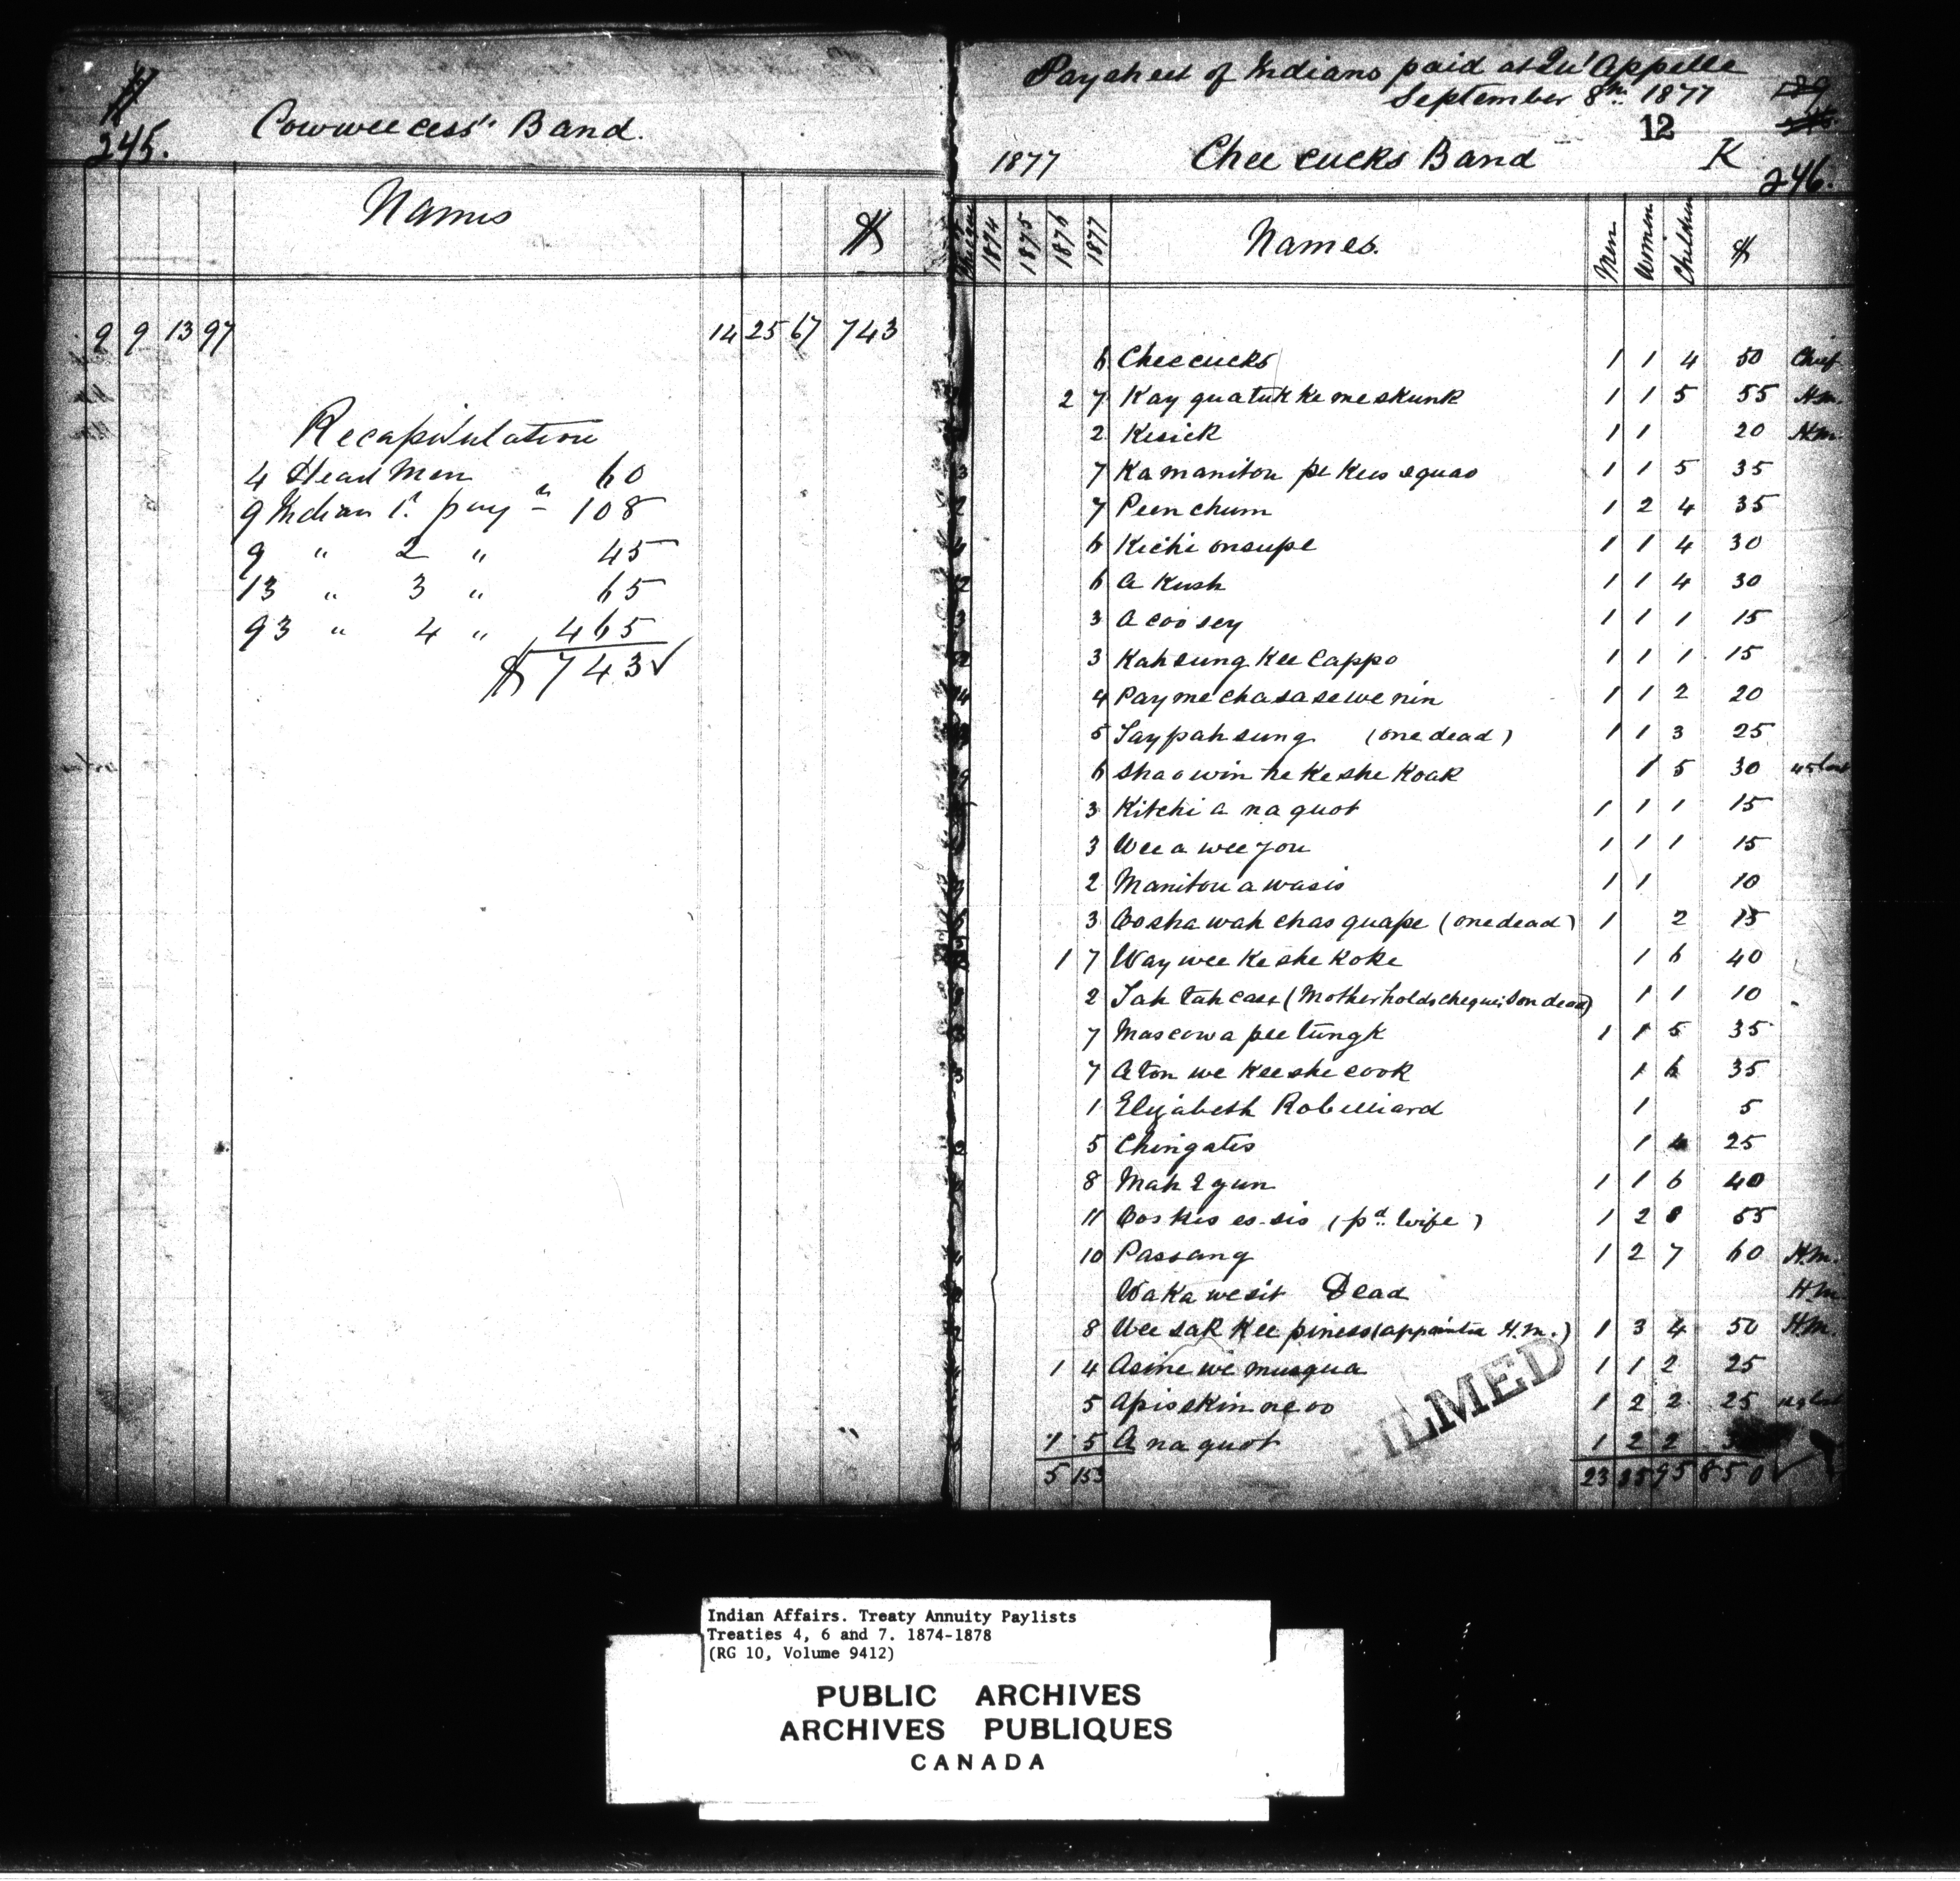 245.
Cowwecess' Band.
Names $
9 9 13 97 14 25 67 743
Recapitulation
4 Head Men 60
9 Indian 1st payt 108
9 " 2 " 45
13 " 3 " 65
93 " 4 " 465
$743 ✓
Paysheet of Indians paid at Qu'Appelle
September 8th 1877
12
1877 Chee cucks Band K
246.
1874 1875 1876 1877 Names. Men Women Children $
6 Cheecucks 1 1 4 50 Chief
2 7 Kay quatuk ke me skunk 1 1 5 55 H.m.
2 Kesick 1 1 20 H.m.
7 Ka manitou pe kees equao 1 1 5 35
7 Peen chum 1 2 4 35
6 Kichi onsupe 1 1 4 30
6 A Kush 1 1 4 30
3 A coo sey 1 1 1 15
3 Kah sung Kee Cappo 1 1 1 15
4 Pay me chasa se we nin 1 1 2 20
5 Tay pah sung (one dead) 1 1 3 25
6 Sha o win ne Ke she Koak 1 5 30
3 Kitchi a na quot 1 1 1 15
3 Wee a wee you 1 1 1 15
2 Manitou a wasis 1 1 10
3 Oosha wah chas quape (one dead) 1 2 15
1 7 Way wee Ke she Koke 1 6 40
2 Tah tah cass (Mother holds cheque: Son dead) 1 1 10
7 Mascowa pee tungk 1 1 5 35
7 A ton we Kee she cook 1 6 35
1 Elizabeth Robilliard 1 5
5 Chingates 1 4 25
8 Mah 2 gun 1 1 6 40
11 Oos kis es-sis (pd. wife) 1 2 8 55
10 Passang 1 2 7 60 H.m.
Waka wesit Dead H.m.
8 Wee sak Kee piness (appointed H.m.) 1 3 4 50 H.m.
1 4 Asine we musqua 1 1 2 25
5 Apis skin ne oo 1 2 2 25
1 5 A na quot 1 2 2
5 153 23 35 95 850 ✓
ILMED
Indian Affairs. Treaty Annuity Paylists
Treaties 4, 6 and 7. 1874-1878
(RG 10, Volume 9412)
PUBLIC ARCHIVES
ARCHIVES PUBLIQUES
CANADA